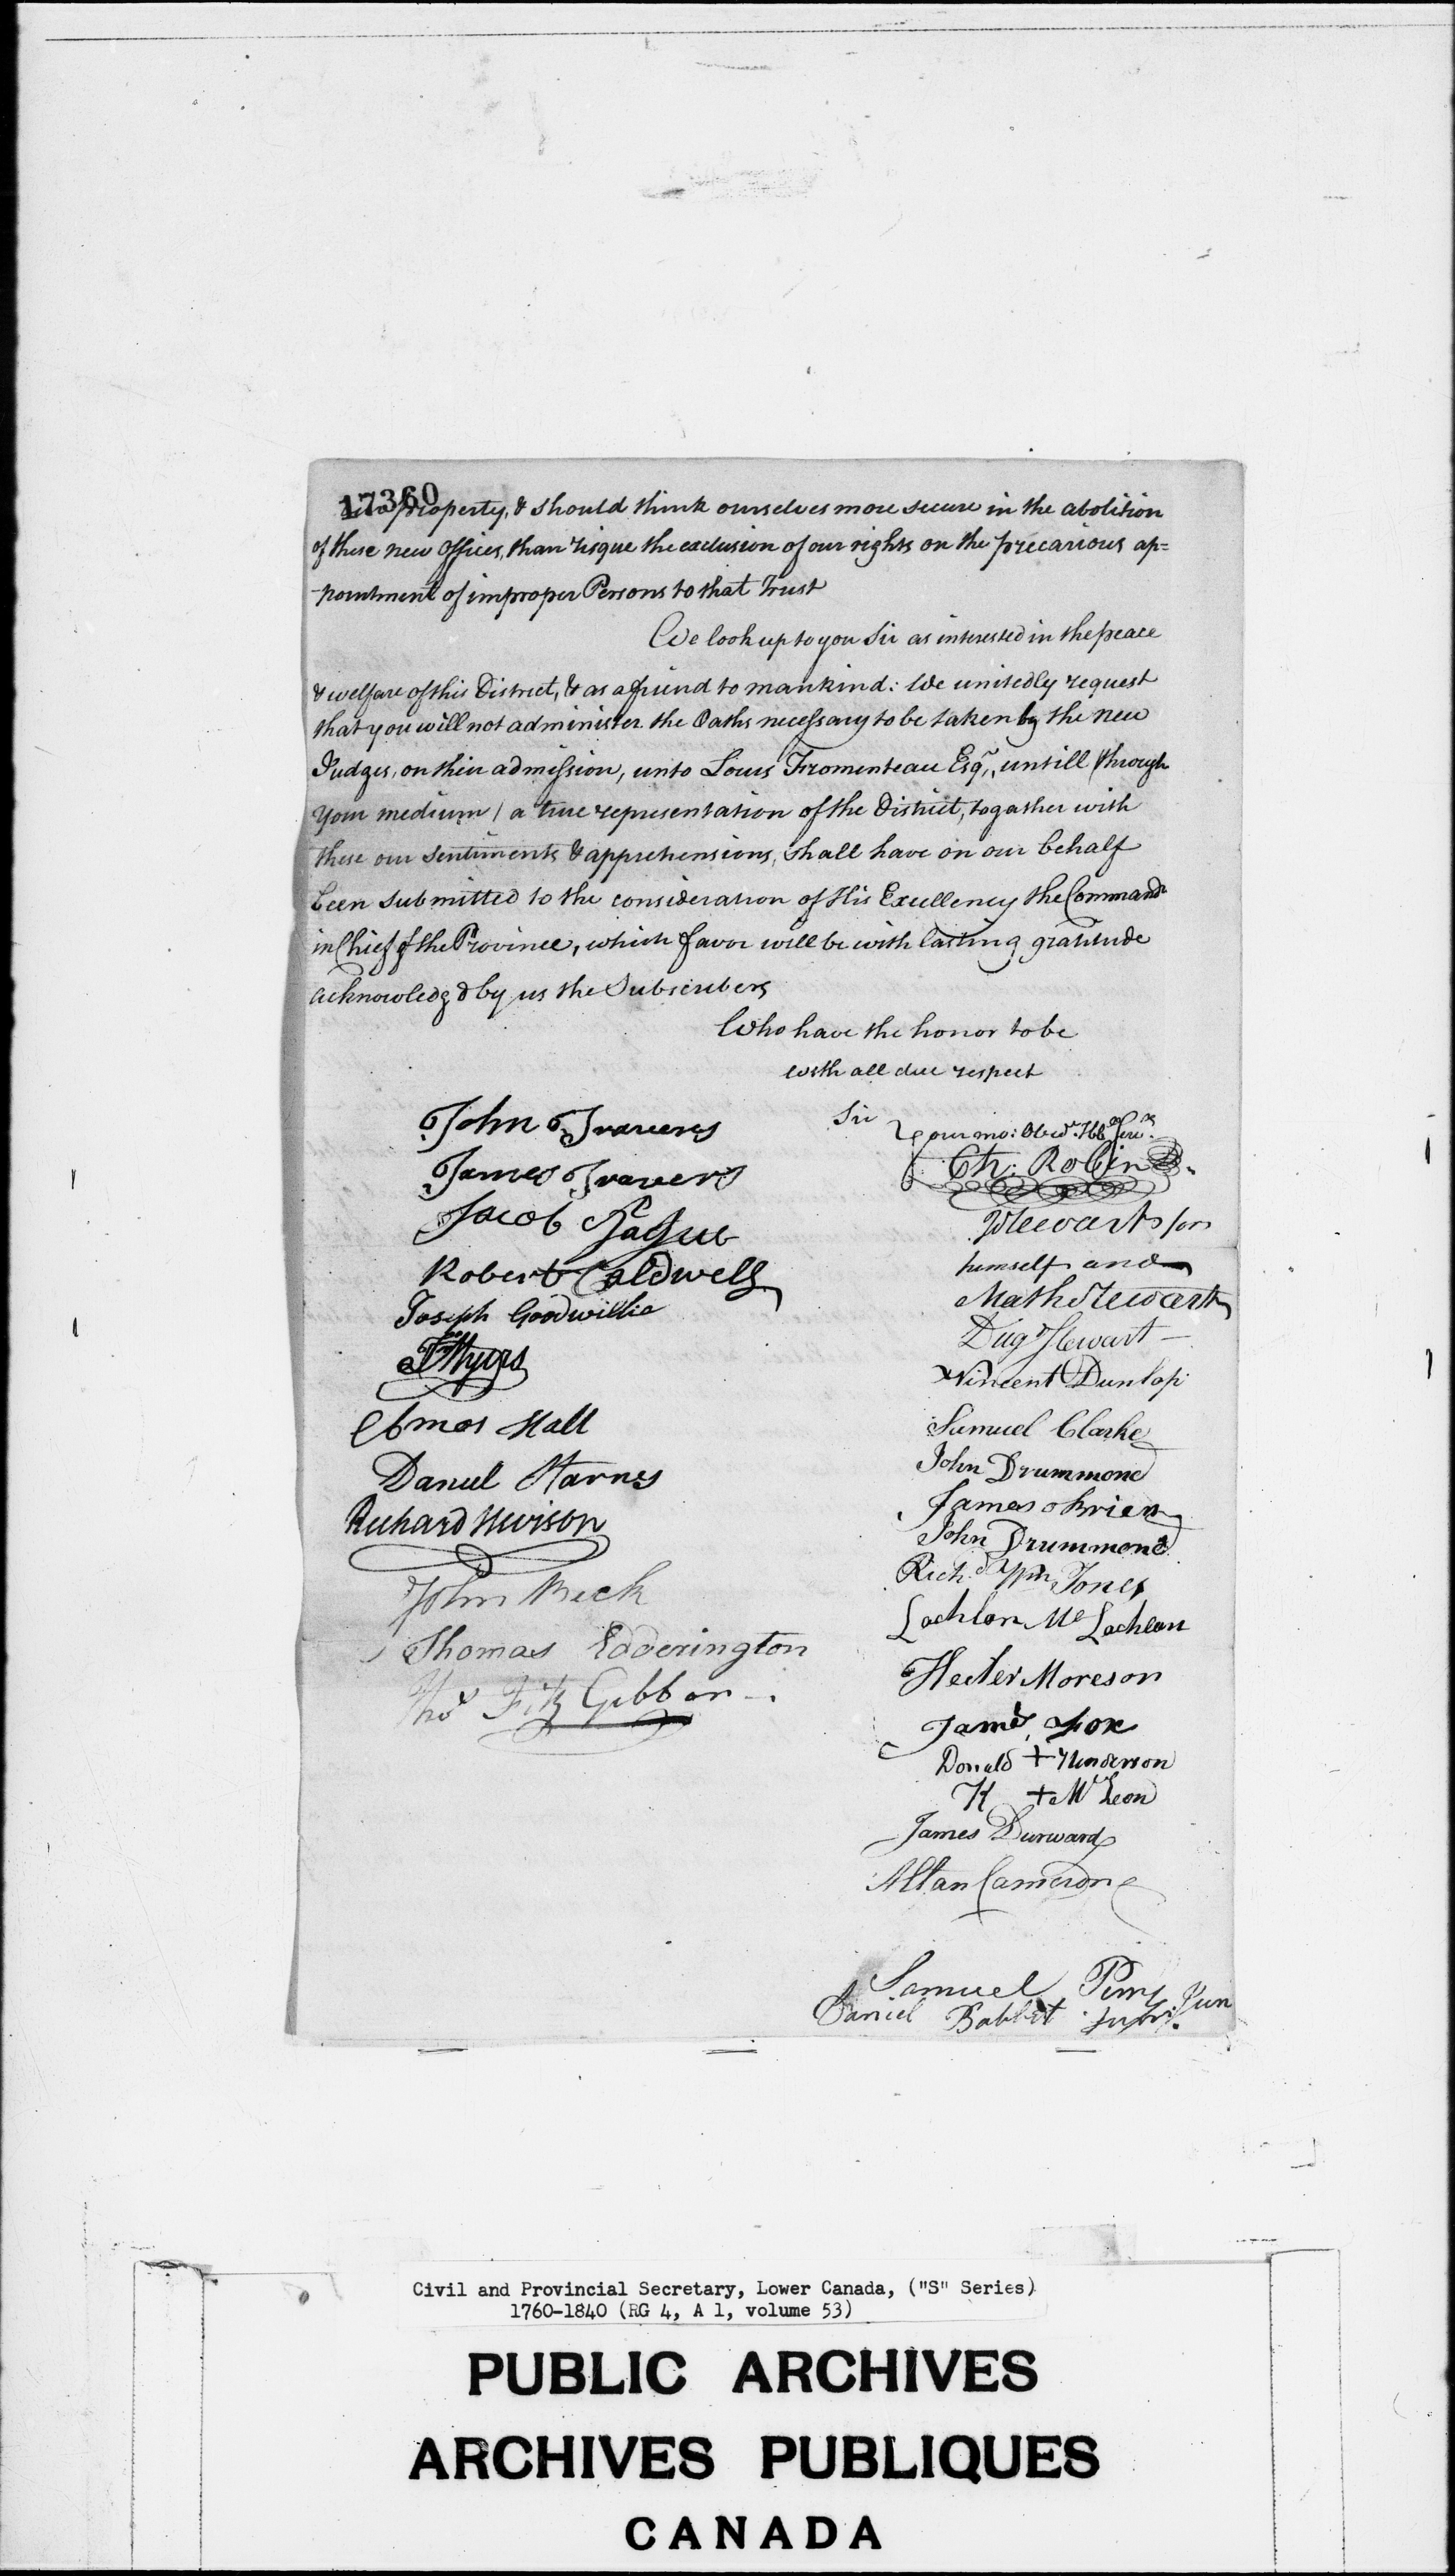 17360
property, & should think ourselves more secure in the abolition
of these new Offices, than risque the exclusion of our rights on the precarious ap=
-pointment of improper Persons to that Trust
We look up to you Sir as interested in the peace
& welfare of this District, & as a friend to mankind: We unitedly request
that you will not administer the Oaths necessary to be taken by the new
Judges, on their admission, unto Louis Fromenteau Esqr., untill (through
your medium) a true representation of the District, togather with
these our sentiments & apprehensions, shall have on our behalf
been submitted to the consideration of His Excellency the Commandr
in Chief of the Province, which favor will be with lasting gratitude
acknowledg'd by us the Subscribers
Who have the honor to be
with all due respect
Sir
Your mo: Obedt. Hble Servts.
John Travers
James Travers
Jacob
Robert Caldwell
Joseph Goodwillie
Myers
Amos Hall
Daniel Starnes
Richard Nevison
John Beck
Thomas Edderington
Thos FitzGibbon
Ch: Robin
Stewart for
himself and
Math Stewart
Dugd Stewart
Vincent Dunlop
Samuel Clarke
John Drummond
James oBrien
John Drummond
Richd Wm Jones
Lachlan Mc Lachlan
Hecter Moreson
James Fox
Donald + Henderson
K + Mc Leon
James Durward
Allan Cameron
Samuel Perry Jun
Daniel Babbit
Civil and Provincial Secretary, Lower Canada, ("S" Series)
1760-1840 (RG 4, A 1, volume 53)
PUBLIC ARCHIVES
ARCHIVES PUBLIQUES
CANADA